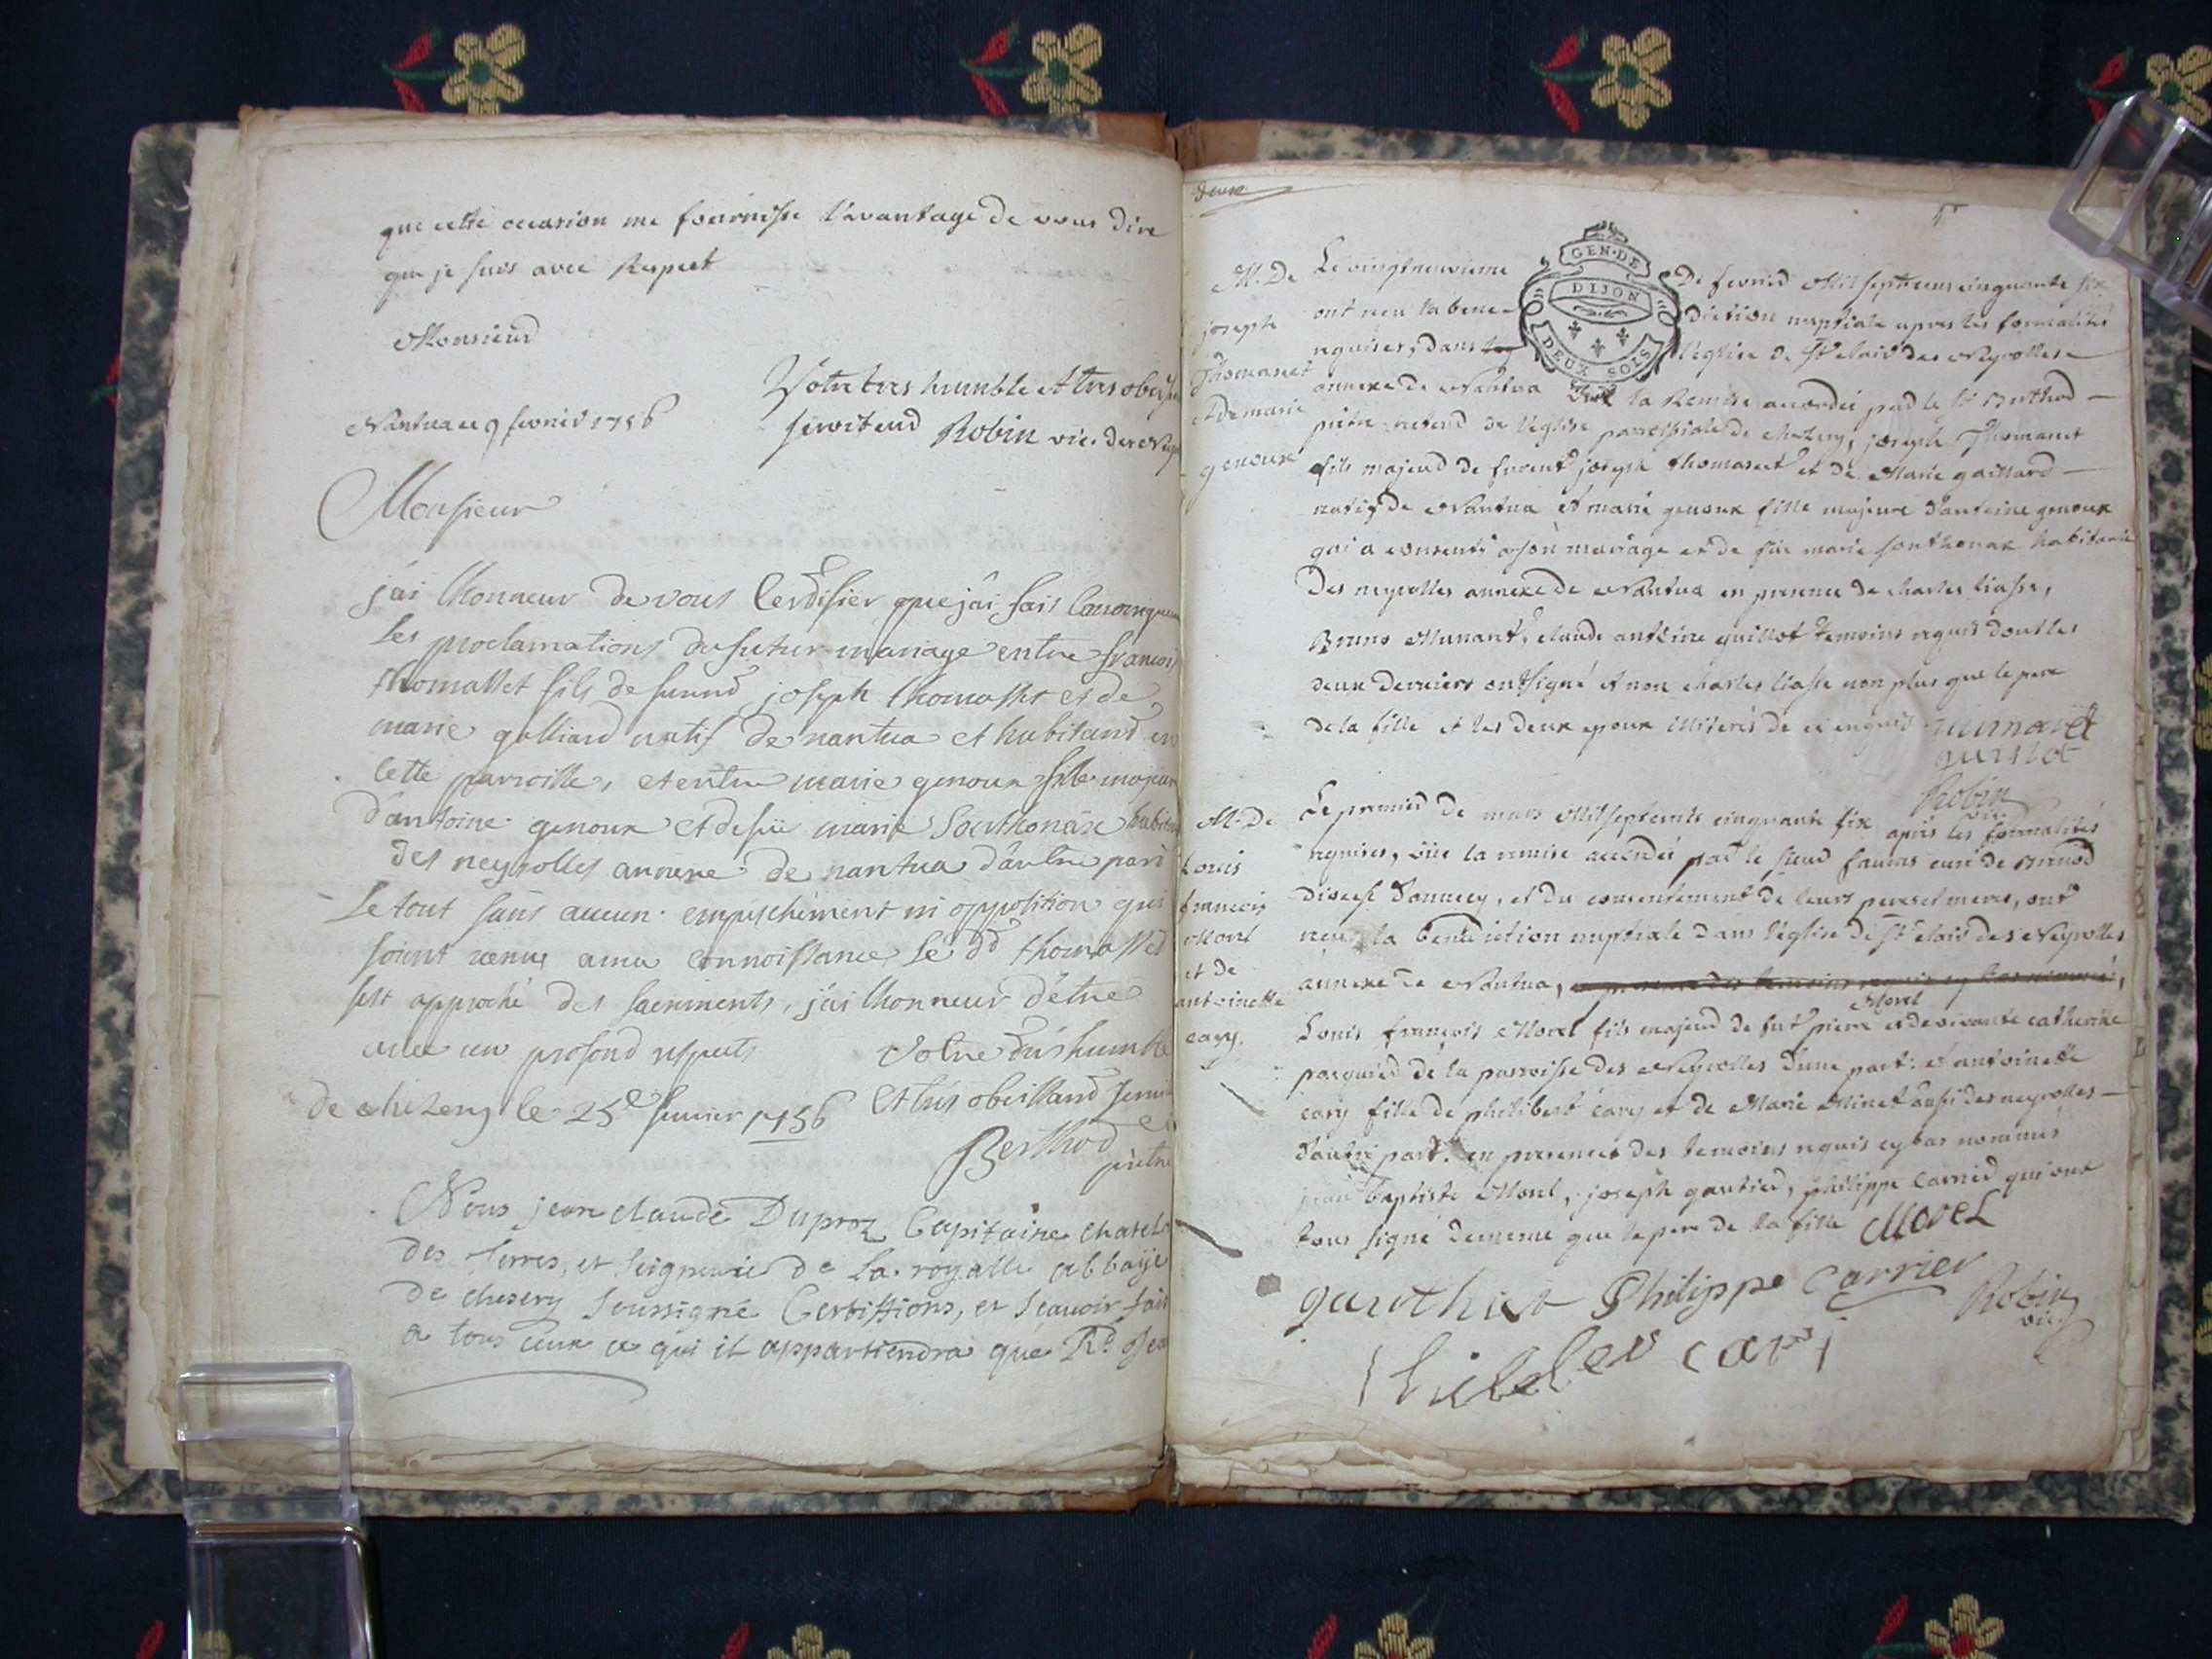 que cette occasion me fournisse l'avantage de vous dire
que je suis avec Respect
Monsieur
Votre tres humble et tres obeiss
Nantua ce 9 fevrier 1756
serviteur Robin vic. des Ney
Monsieur
j'ai lhonneur de vous Certifier que j'ai fait Canoniquem
les proclamations du futur mariage entre francois
thomasset fils de feu joseph thomasset et de
marie galliard natif de nantua et habitant en
Cette parroisse, et entre marie genoux fille majeur
d'antoine genoux et de füe marie Southonax habit
des neyrolles annexe de nantua d'autre part
Le tout sans aucun empeschement ni opposition qui
soient venus a ma connoissance le dt thomasset
sest approché des sacrements, j'ai lhonneur d'etre
avec un profond respects votre tres humble
de chezery le 25e fevrier 1756 et tres obeissant servi
Berthod
prêtre
Nous jean claude Duproz Capitaine chatel
des Terres, et seigneurie de La royalle abbaÿe
de chesery soussigné Certiffions, et scavoir fais
a tous ceux a qui il appartiendra que Rd
deux
GEN·DE
DIJON
DEUX SOLS
M. De
joseph
Thomaset
et de marie
genoux
Le vingt neuvieme De fevrier Mil sept cens cinquante six
ont reçu la bene- diction nuptiale apres les formalités
requises, dans l'eglise de St clair des Neyrolles
annexe de Nantua vüe la Remise accordée par le Sr Berthod
prêtre de l'église parroissiale de chezery, joseph Thomaset
fils majeur de joseph thomaset et de Marie gaillard
natif de Nantua et marie genoux fille majeure d'antoine genoux
qui a consenti a son mariage et de füe marie sonthonax habitante
Des neyrolles annexe de Nantua en presence de charles liasse,
Bruno Munant, claude antoine guillot temoins requis dont les
deux derniers ont signé et non charles liasse non plus que le pere
de la fille et les deux epoux illiterés de ce enquis
guillot
Robin
vic.
M. De
Louis
francois
Morel
et de
antoinette
cary.
Le premier de mars Mil sept cents cinquante six apres les formalités
requises, vüe la remise accordée par le sieur curé de
diocese D'annecy, et du consentement de leurs peres et meres, ont
reçu la benediction nuptiale dans l'église de St clair des Neyrolles
annexe de Nantua,
Morel
Louis françois Morel fils majeur de fut pierre et de vivante catherine
de la parroisse des Neyrolles d'une part: et antoinette
cary fille de philibert cary et de Marie Minet aussi des neyrolles
d'autre part. en presences des temoins requis cy bas nommés
jean baptiste Morel, joseph gautier, philippe Carrier qui ont
tous signé de meme que le pere de la fille Morel
gauthier Philippe Carrier
Robin
vic.
cari